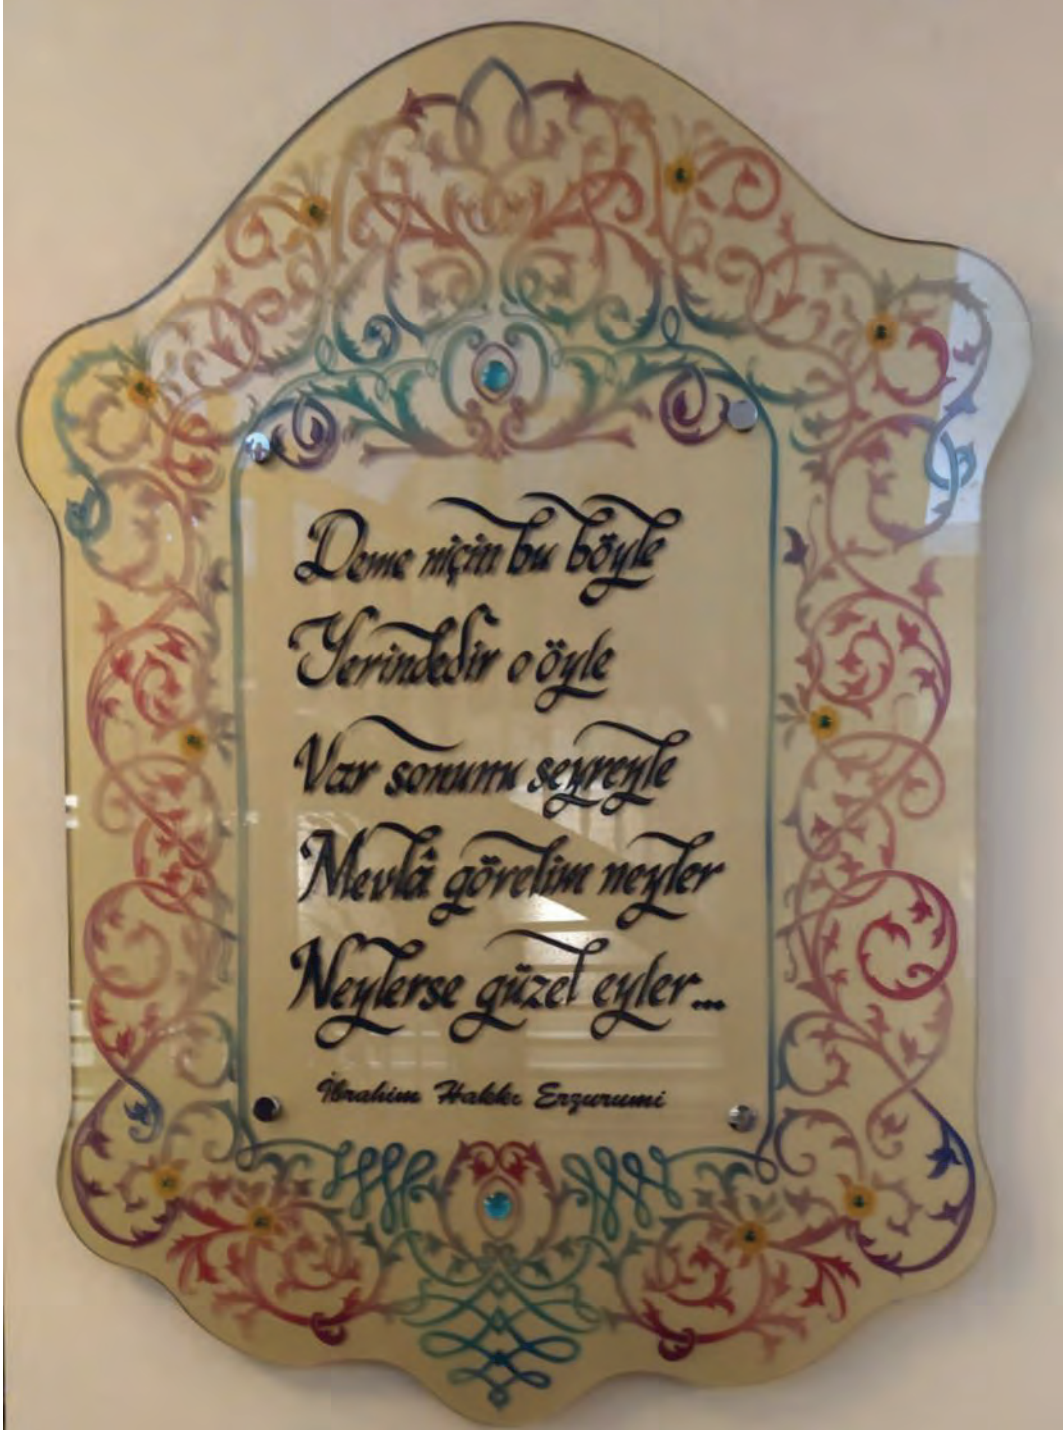 Deme niçin bu böyle
Yerindedir o öyle
Var sonunu seyreyle
Mevlâ görelim neyler
Neylerse güzel eyler...
İbrahim Hakkı Erzurumi